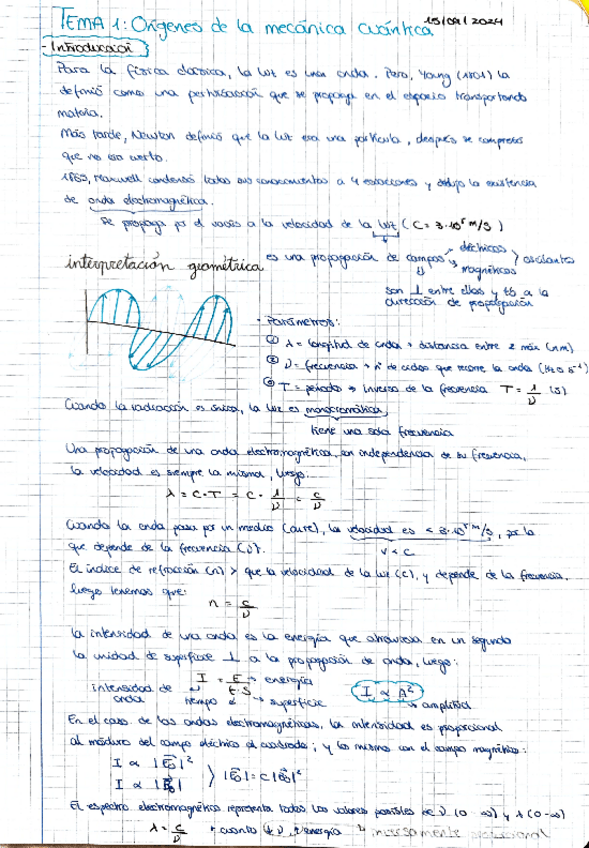 TEMA 1: Orígenes de la mecánica cuántica. 15/09/2024
- Introducció
Para la física clásica, la luz es una onda. Pero, Young (1801) la
definió como una perturbación que se propaga en el espacio transportando
materia.
Más tarde, Newton definió que la luz era una partícula, después se comprobó
que no era cierto.
1865, Maxwell condensó todos sus conocimientos a 4 ecuaciones y dedujo la existencia
de onda electromagnética.
Se propaga por el vacío a la velocidad de la luz (C = 3·10⁸ m/s)
es una propagación de campos eléctricos magnéticos > oscilantes
son ⊥ entre ellos y tb a la
dirección de propagación
interpretación geométrica
- Parámetros:
① λ = longitud de onda → distancia entre 2 máx (nm)
② ν = frecuencia → nº de ciclos que recorre la onda (Hz o s⁻¹)
③ T = periodo → inverso de la frecuencia T = 1/ν (s)
Cuando la radiación es única, la luz es monocromática,
tiene una sola frecuencia
Una propagación de una onda electromagnética, en independencia de su frecuencia,
la velocidad es siempre la misma, luego:
λ = C·T = C · 1/ν = c/ν
Cuando la onda pasa por un medio (aire), la velocidad es < 3·10⁸ m/s, por lo
que depende de la frecuencia (ν).
v < c
El índice de refracción (n) > que la velocidad de la luz (c), y depende de la frecuencia,
luego tenemos que:
n = c/ν
la intensidad de una onda es la energía que atraviesa en un segundo
la unidad de superficie ⊥ a la propagación de onda, luego:
I = E/t·S → energía
intensidad de onda tiempo → superficie
I ∝ A² → amplitud
En el caso de las ondas electromagnéticas, la intensidad es proporcional
al módulo del campo eléctrico al cuadrado; y lo mismo con el campo magnético:
I ∝ |E₀|²
I ∝ |B₀|² > |E₀| = c|B₀|²
El espectro electromagnético representa todos los valores posibles de ν (0 - ∞) y λ (0-∞)
λ = c/ν → cuanto ν, energía ↳ inversamente proporcional